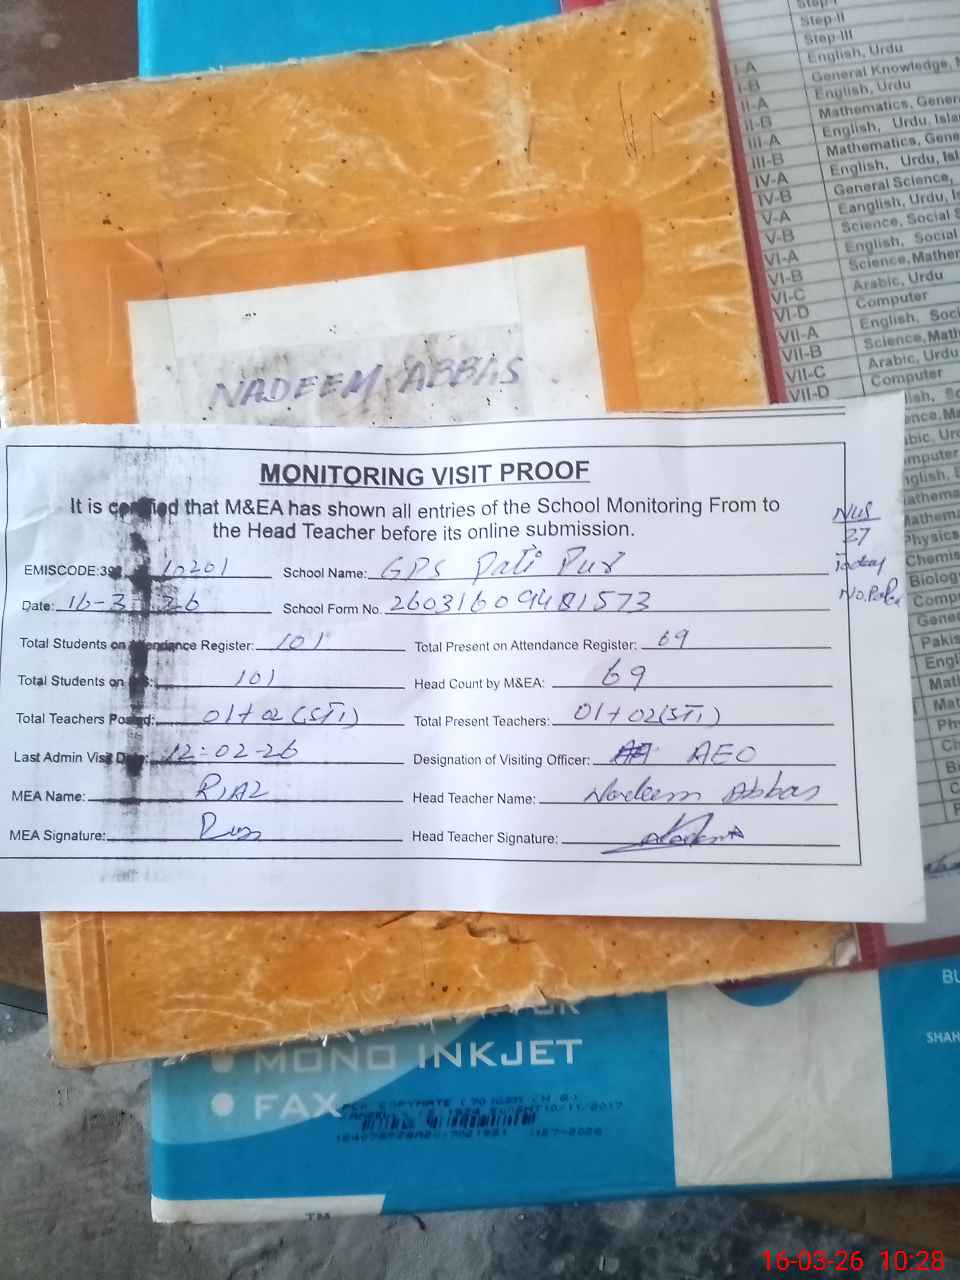 Step-I
Step-II
Step-III
I-A English, Urdu
I-B General Knowledge,
II-A English, Urdu
II-B Mathematics, Gener
III-A English, Urdu, Isla
III-B Mathematics, Gene
IV-A English, Urdu, Isl
IV-B General Science,
V-A Eanglish, Urdu, Is
V-B Science, Social S
VI-A English, Social
VI-B Science, Mathe
VI-C Arabic, Urdu
VI-D Computer
VII-A English, Soci
VII-B Science, Math
VII-C Arabic, Urdu
VII-D Computer
NADEEM ABBAS
MONITORING VISIT PROOF
It is certified that M&EA has shown all entries of the School Monitoring From to
the Head Teacher before its online submission.
NUS
27
Today
EMISCODE:39 10201 School Name: GPS Pati Pur
Date: 16-3 26 School Form No. 26031609481573
Total Students on Attendance Register: 101 Total Present on Attendance Register: 69
Total Students on 101 Head Count by M&EA: 69
Total Teachers Posted: 01+02(STI) Total Present Teachers: 01+02(STI)
Last Admin Visit Date: 12-02-26 Designation of Visiting Officer: AEO
MEA Name: RIAZ Head Teacher Name: Nadeem Abbas
MEA Signature: Head Teacher Signature:
Physics
Chemis
Biology
Comp
Gene
Pakis
Engli
Mat
Mat
Ph
Ch
MONO INKJET
FAX
BU
SHAH
TM
16-03-26 10:28